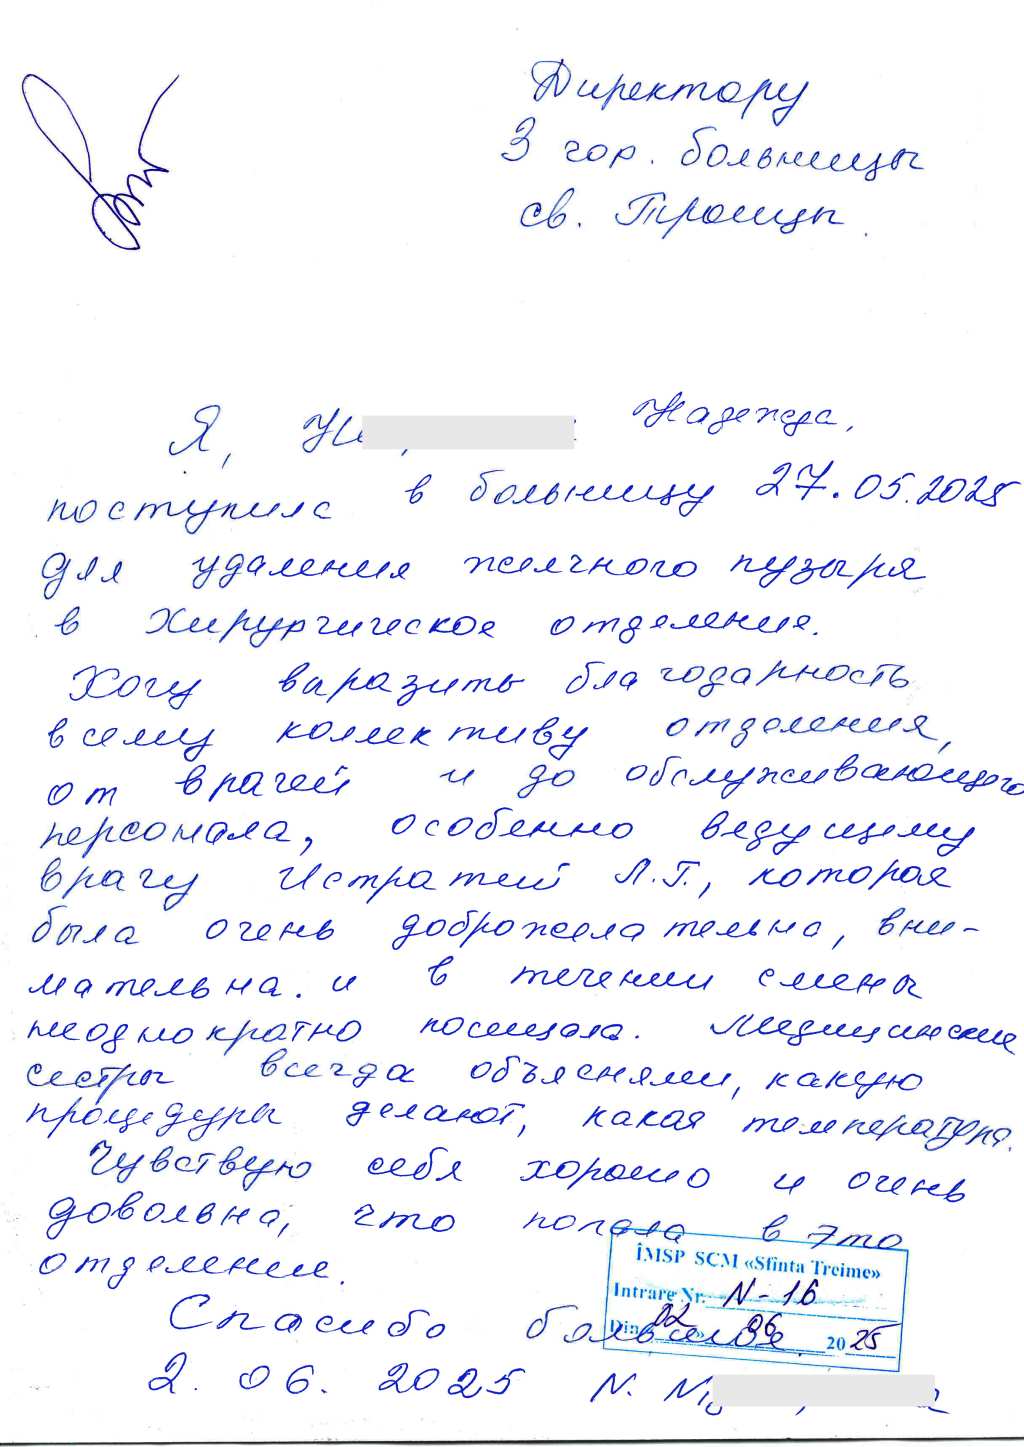 Директору
3 гор. больницы
св. Троицы.
Я, Надежда,
поступила в больницу 27.05.2025
для удаления желчного пузыря
в хирургическое отделение.
Хочу выразить благодарность
всему коллективу отделения,
от врачей и до обслуживающего
персонала, особенно ведущему
врачу Истратий Л.Г., которая
была очень доброжелательна, вни-
мательна. и в течении смены
неоднократно посещала. Медицинские
сестры всегда объясняли, какую
процедуры делают, какая температура.
Чувствую себя хорошо и очень
довольна, что попала в это
отделение.
ÎMSP SCM «Sfinta Treime»
Intrare Nr. N-16
Din 02 06 2025
Спасибо большое.
2. 06. 2025 N.